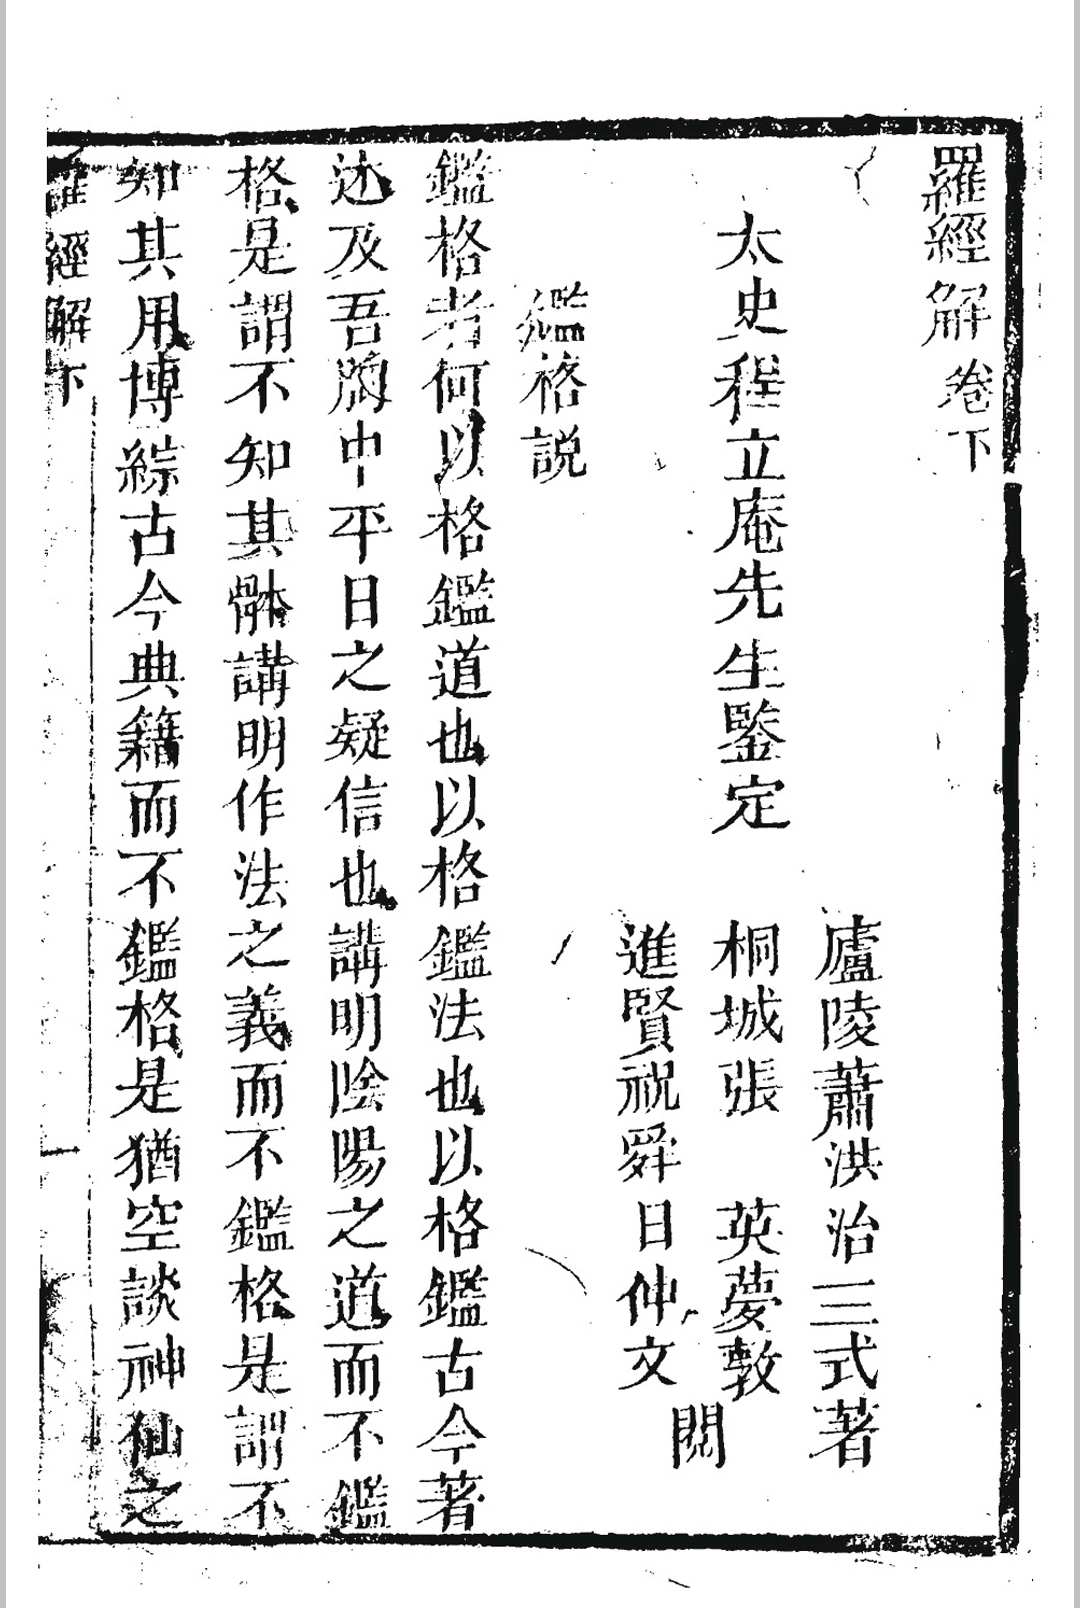 羅經解卷下
廬陵蕭洪治三式著
太史程立庵先生鑒定
桐城張 英夢敦
進賢祝舜日仲文
閱
鑑格説
鑑格者何以格鑑道也以格鑑法也以格鑑古今著
述及吾胸中平日之疑信也講明陰陽之道而不鑑
格是謂不知其骵講明作法之義而不鑑格是謂不
知其用博綜古今典籍而不鑑格是猶空談神仙之
羅經解 下
一